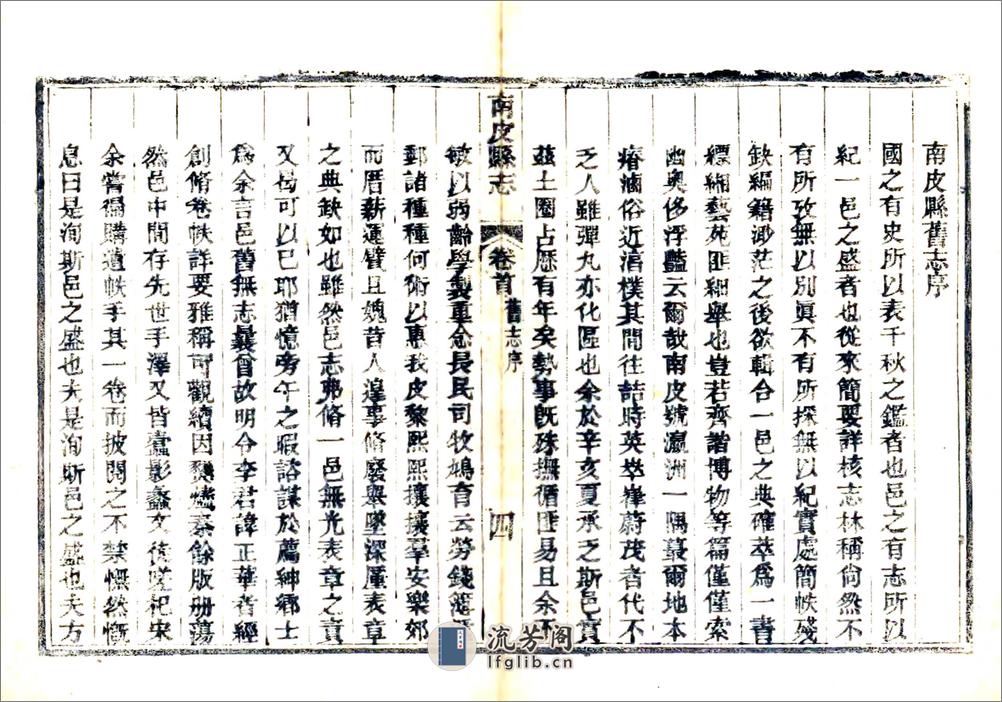 南皮縣舊志序
國之有史所以表千秋之鑑者也邑之有志所以
紀一邑之盛者也從來簡要詳核志林稱尚然不
有所攷無以別眞不有所探無以紀實處簡帙殘
缺編籍渺茫之後欲輯合一邑之典確萃爲一書
縹緗藝苑匪細舉也豈若齊諧博物等篇僅僅索
幽奥侈浮豔云爾哉南皮號瀛洲一隅蕞爾地本
瘠滷俗近湻樸其間往詰時英萃嶐蔚茂者代不
乏人雖彈丸亦化區也余於辛亥夏承乏斯邑賓
茲土圈占歷有年矣勢事旣殊撫循匪易且余不
南皮縣志
卷首
舊志序
四
敏以弱齡學製重念長民司牧鳩育云勞錢簿
郵諸種種何術以惠我皮黎熙熙攘攘羣安樂郊
而厝薪運臂且媿昔人遑事修廢與墜深厪表章
之典缺如也雖然邑志弗脩一邑無光表章之責
又曷可以已耶猶憶旁午之暇諮謀於薦紳鄉士
爲余言邑舊無志曩曾故明令李君諱正華者經
創脩卷帙詳要雅稱可觀續因燹燼秦餘版册蕩
然邑中間存先世手澤又皆蠹影蠡文傞嗟祀宋
余嘗得購遺帙手其一卷而披閱之不禁慨然慨
息曰是洵斯邑之盛也夫是洵斯邑之盛也夫方
流芳阁
lfglib.cn